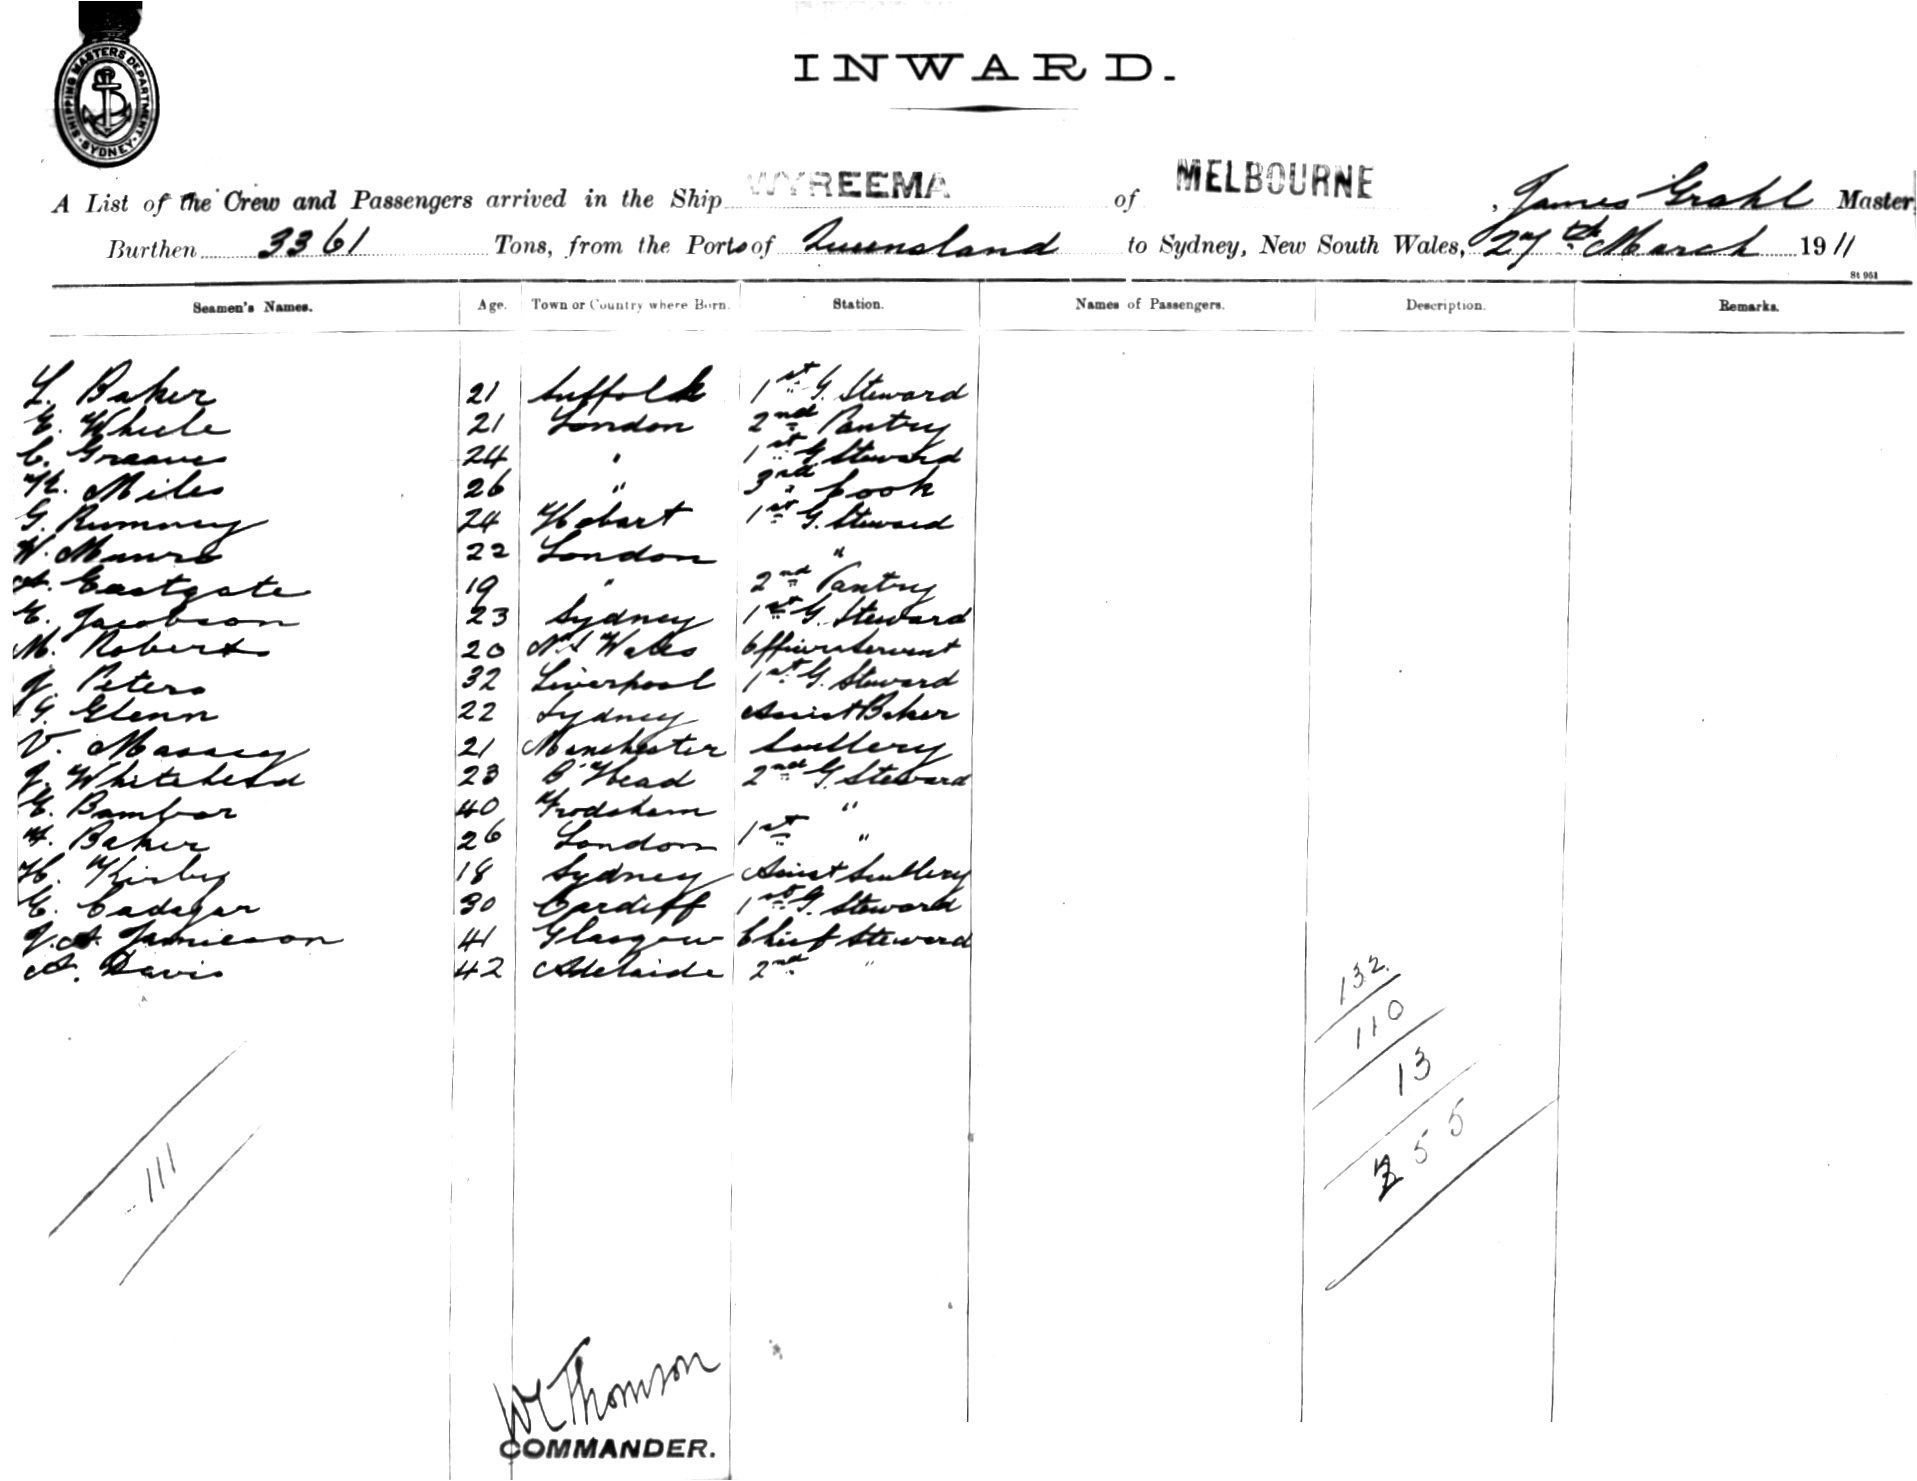 SHIPPING MASTERS DEPARTMENT
SYDNEY
INWARD.
A List of the Crew and Passengers arrived in the Ship WYREEMA of MELBOURNE, James Grahl Master
Burthen 3361 Tons, from the Ports of Queensland to Sydney, New South Wales, 27th March 1911
St 951
Seamen's Names. Age. Town or Country where Born. Station. Names of Passengers. Description. Remarks.
L. Baker 21 Suffolk 1st G. Steward
E. Wheele 21 London 2nd Pantry
C. Greaves 24 " 1st G Steward
H. Miles 26 " 3rd Cook
G. Rumney 24 Hobart 1st G. Steward
W. Munro 22 London "
A. Eastgate 19 " 2nd Pantry
E. Jacobson 23 Sydney 1st G. Steward
M. Roberts 20 N. S Wales Officers Servant
J. Peters 32 Liverpool 1st G. Steward
G. Glenn 22 Sydney Assist Baker
V. Massey 21 Manchester Scullery
J. Whitehead 23 B'Head 2nd G. Steward
E. Bamber 40 Frodsham "
H. Baker 26 London 1st "
H. Kirby 18 Sydney Assist Scullery
E. Cadagar 30 Cardiff 1st G. Steward
J. A. Jamieson 41 Glasgow Chief Steward
A. Davis 42 Adelaide 2nd "
132.
110
13
255
111
W Thomson
COMMANDER.